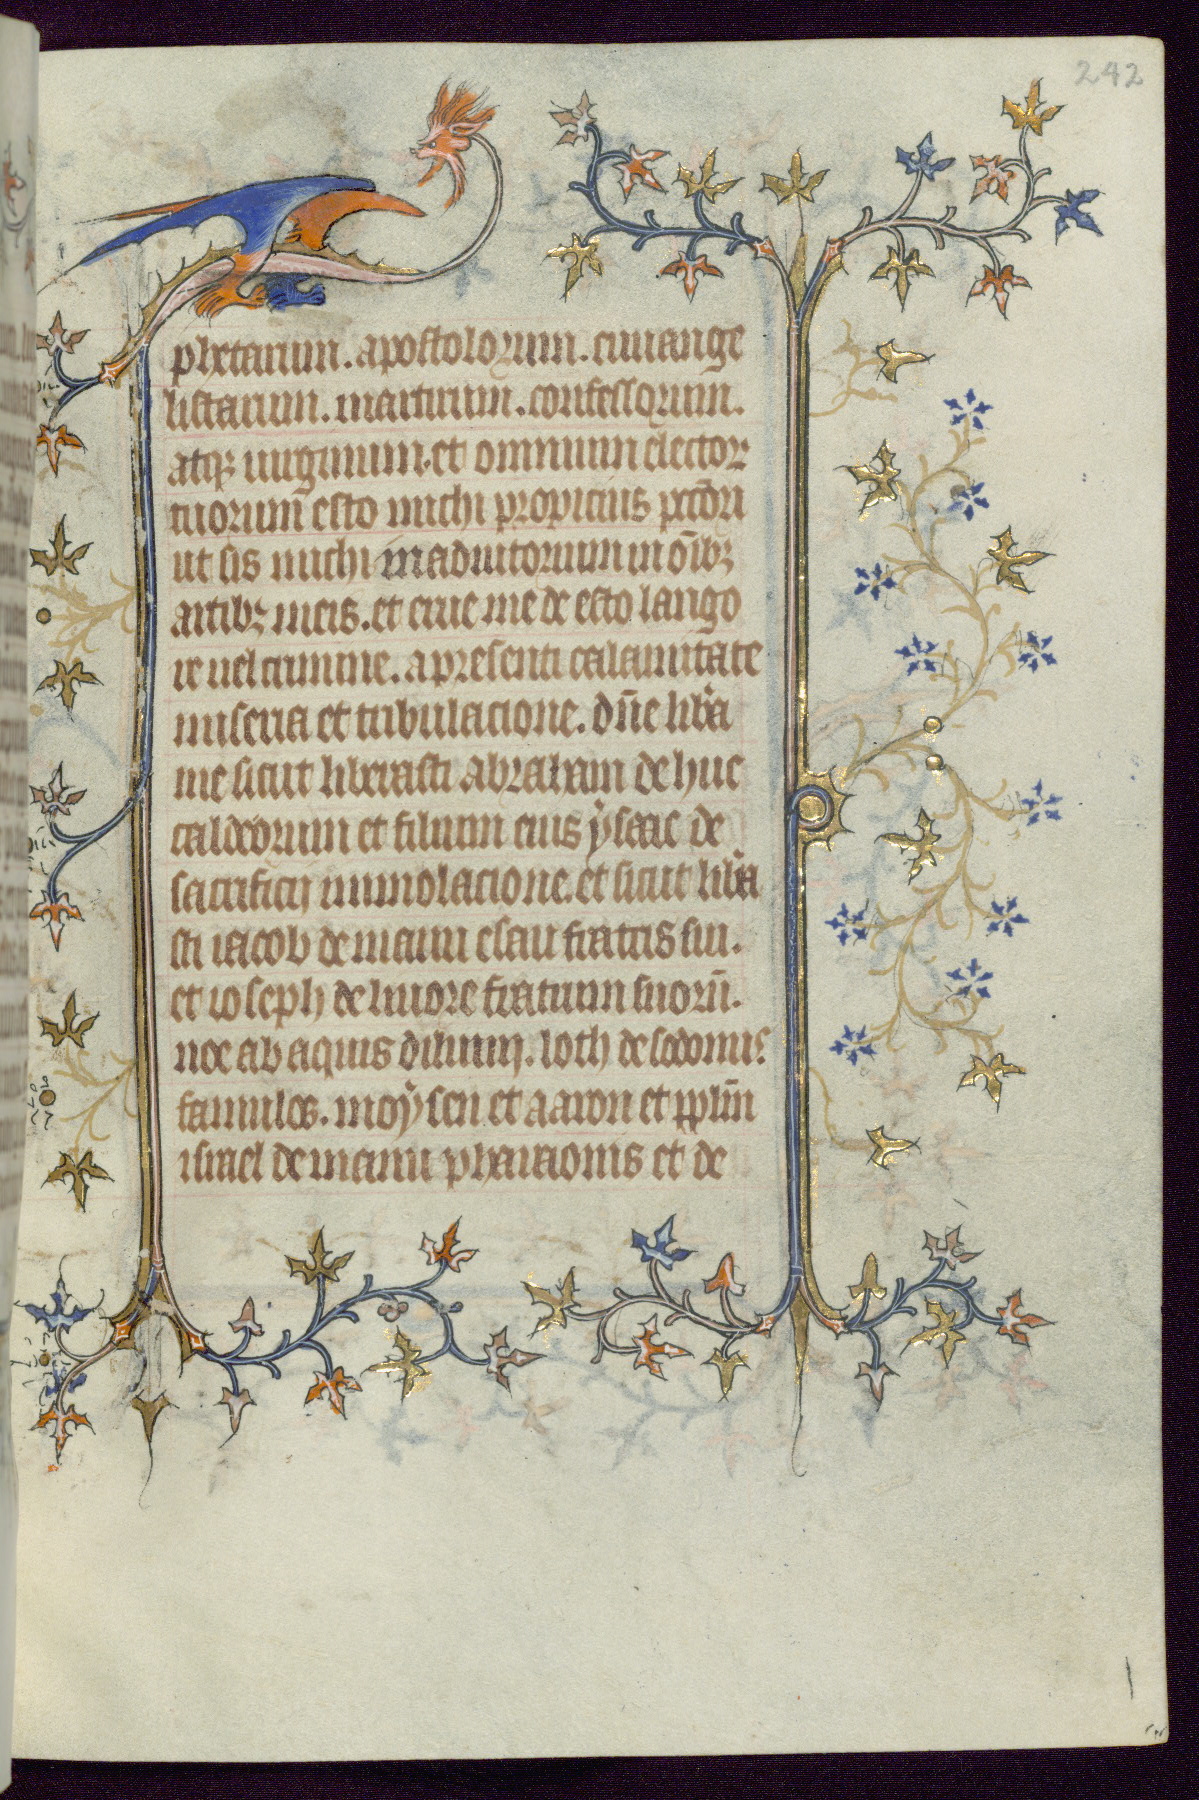 242
phetarum. apostolorum. euuange
listarum. martirum. confessorum.
atqꝫ uirginum. et omnium electoꝝ
tuorum esto michi propicius pctōri
ut sis michi in adiutorium in oībꝫ
artibꝫ meis. et erue me de esto lango
re uel crimine. a presenti calamitate
miseria et tribulacione. dn̄e libᷓa
me sicut liberasti abraham de hur
caldeorum et filium eius ẏsaac de
sacrificij immolacione. et sicut libᷓa
sti iacob de manu esau fratris sui.
et ioseph de liuore fratrum suoꝛū.
noe ab aquis diluuij. loth de sodomis
famulos. moẏsen et aaron et pplm̄
israel de manu pharaonis et de